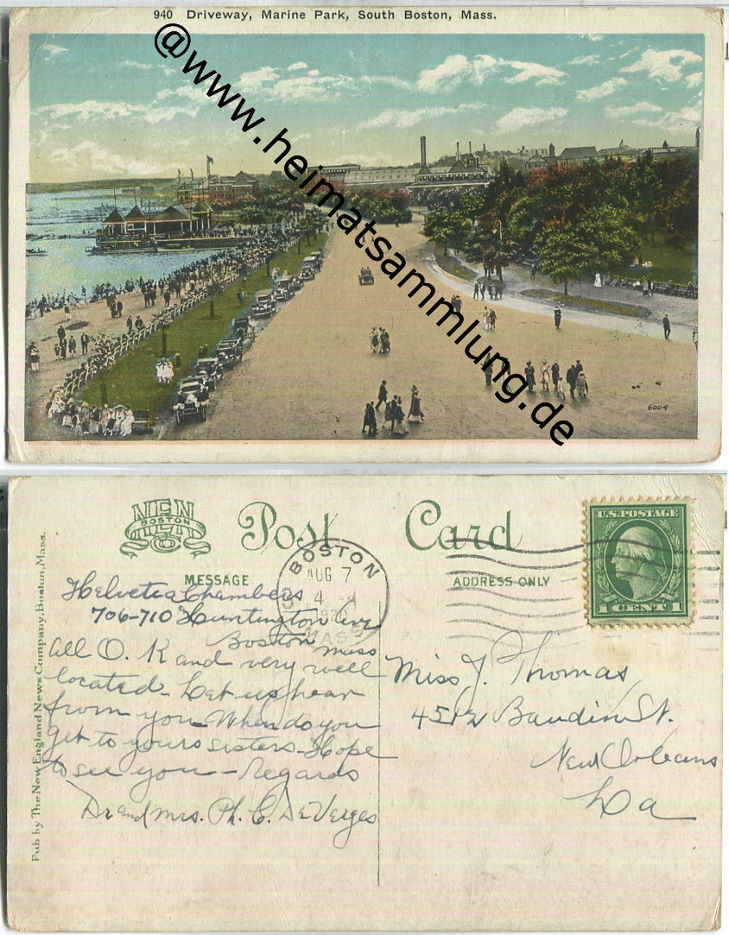 940 Driveway, Marine Park, South Boston, Mass.
@www.heimatsammlung.de
6009
NEN
BOSTON
CO
Post Card
MESSAGE
ADDRESS ONLY
BOSTON
AUG 7
4
MASS
U.S. POSTAGE
1 CENT 1
Pub by The New England News Company, Boston, Mass.
Helvetia Chambers
706-710 Huntington Ave
Boston Mass
all O. K and very well
located - Let us hear
from you - When do you
get to yours sisters - Hope
to see you - Regards
Dr and Mrs. Ph. C. DeVerges
Miss J. Thomas
Baudin St.
New Orleans
La